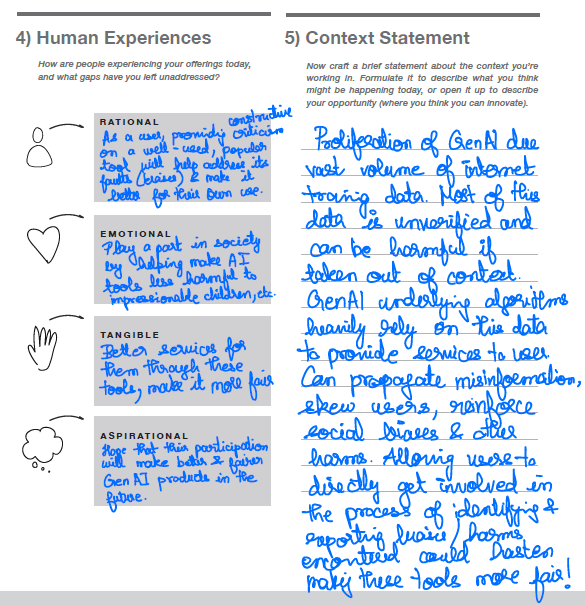 4) Human Experiences
How are people experiencing your offerings today,
and what gaps have you left unaddressed?
RATIONAL
As a user, providing constructive criticism
on a well-used, popular
tool will help address its
faults (biases) & make it
better for their own use.
EMOTIONAL
Play a part in society
by helping make AI
tools less harmful to
impressionable children, etc.
TANGIBLE
Better services for
them through these
tools, make it more fair
ASPIRATIONAL
Hope that their participation
will make better & fairer
GenAI products in the
future.
5) Context Statement
Now craft a brief statement about the context you're
working in. Formulate it to describe what you think
might be happening today, or open it up to describe
your opportunity (where you think you can innovate).
Proliferation of GenAI due
vast volume of internet
training data. Most of this
data is unverified and
can be harmful if
taken out of context.
GenAI underlying algorithms
heavily rely on this data
to provide services to user.
Can propagate misinformation,
skew users, reinforce
social biases & other
harms. Allowing users to
directly get involved in
the process of identifying &
reporting biases/harms
encontered could hasten
making these tools more fair!